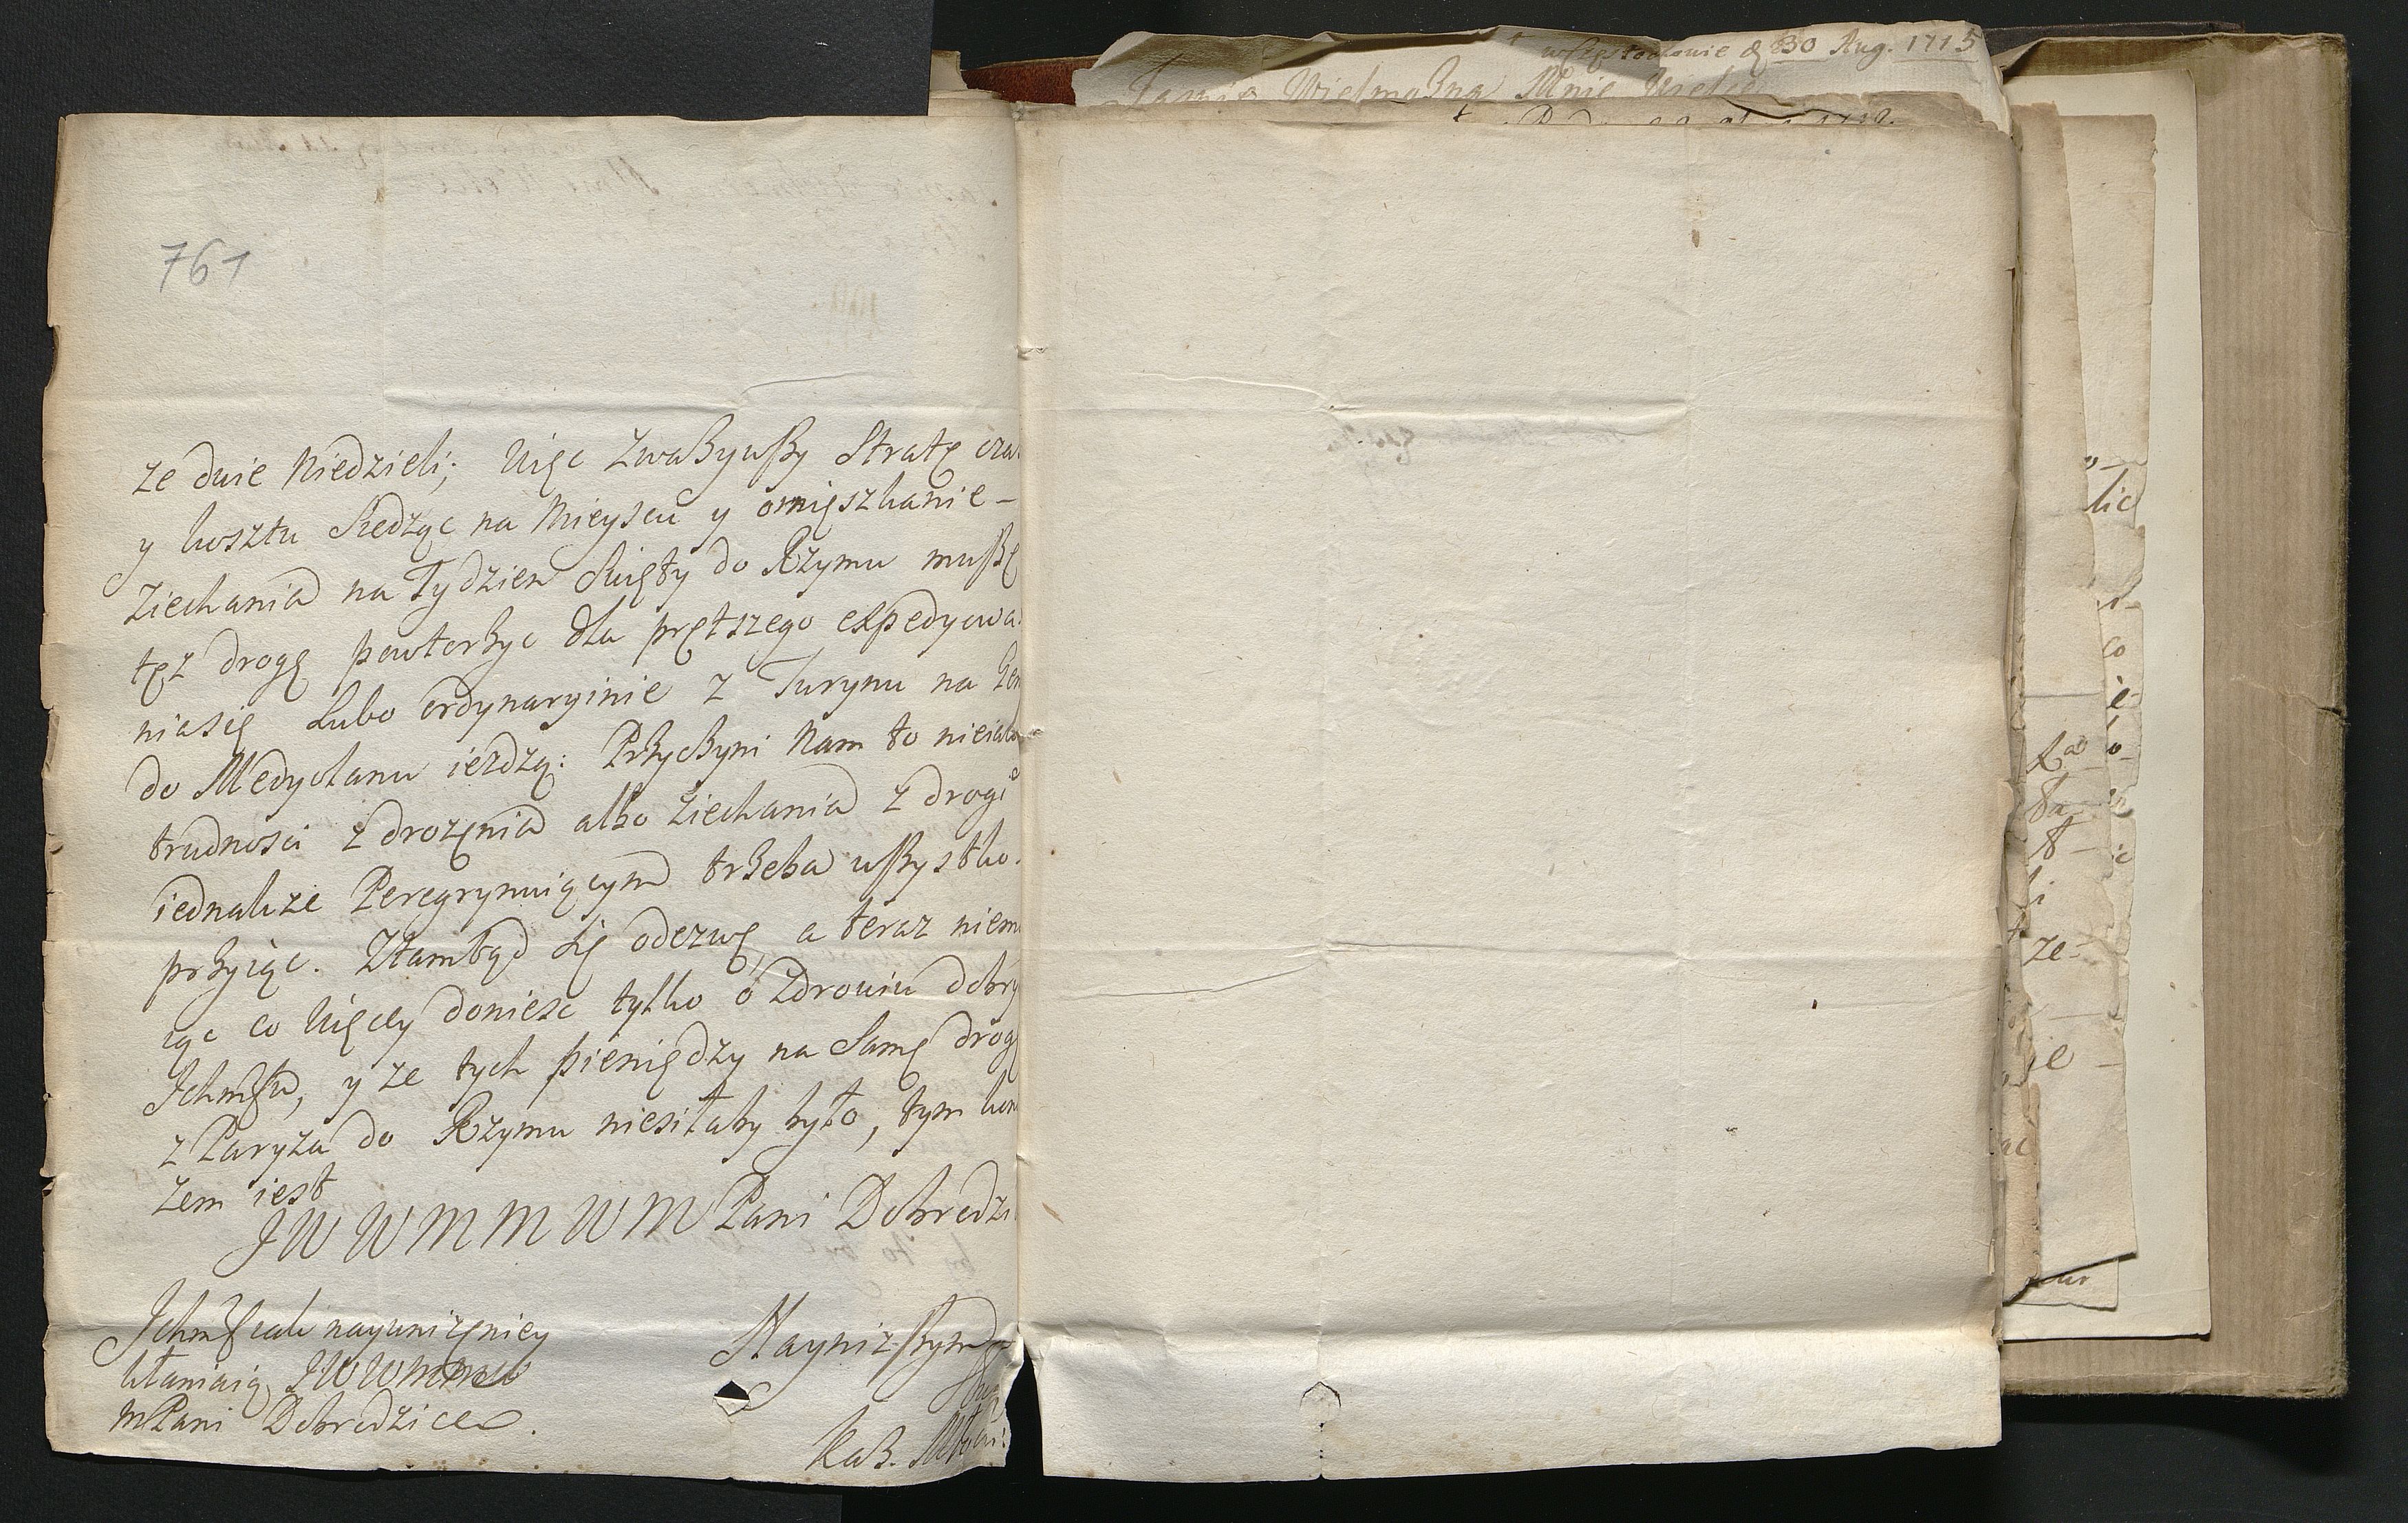 w Częstochowie d. 30 Aug. 1715
Wielmożna Mnie
761
ze dwie Niedzieli; Więc zważywszy Stratę cza
y kosztu siedząc na Mieyscu y omięszkanie-
ziechania na Tydzien Swięty do Rzymu muszę
tęz drogę powtorzyc dla prętszego expedyowa
niasię Lubo ordynaryinie z Turynu na Gen
do Medyolanu iezdzą: Przyczyni Nam to nieiako
trudnosci zdrozęnia albo ziechania z drogi
iednakze Peregrynuiącym trzeba wszystko
przyiąc. Ztamtąd się odezwę, a teraz niem
iąc co Więcey doniesc tylko o Zdrowiu dobry
Ichmściu, y ze tych pieniędzy na Samę drogę
z Paryza do Rzymu niesiłaby było, tym kon
zem iest
JW W M M W M Pani Dobrodzi
Ichmściowie nayunizęniey
kłaniaią JWWMMW
MPani Dobrodzice.
Nayniższym
Kaz.
lic
co
ze-
ie-